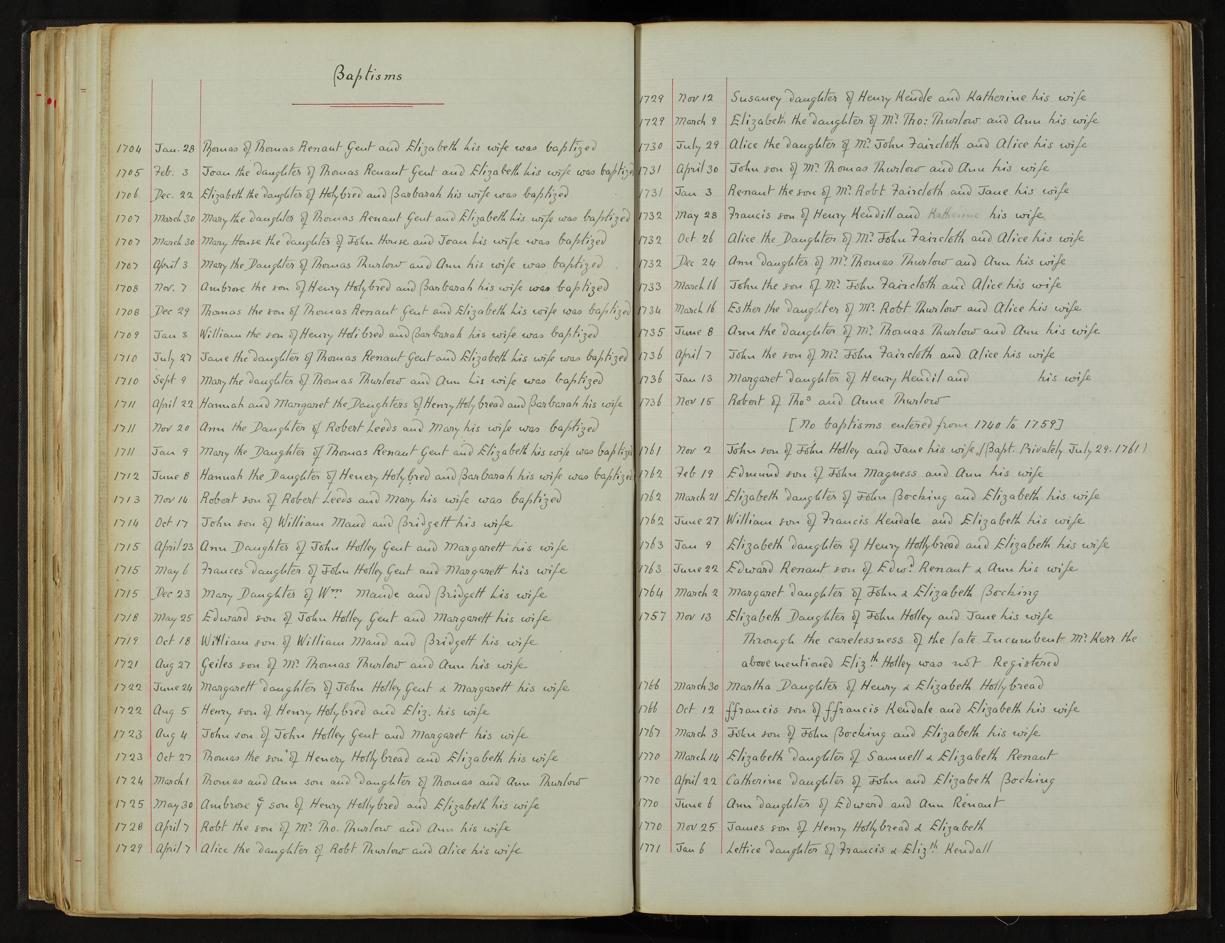 Baptisms
1704 Jan. 28 Thomas of Thomas Renant Gent and Elizabeth his wife was baptized
1705 Feb. 3 Joan the daughter of Thomas Renant Gent and Elizabeth his wife was baptized
1706 Dec. 22 Elizabeth the daughter of Holybred and Barbarah his wife was baptized
1707 March 30 Mary the daughter of Thomas Renant Gent and Elizabeth his wife was baptized
1707 March 30 Mary House the daughter of John House and Joan his wife was baptized
1707 April 3 Mary the Daughter of Thomas Thurlow and Ann his wife was baptized
1708 Nov. 7 Ambrore the son of Henry Holybred and Barbarah his wife was baptized
1708 Dec 29 Thomas the son of Thomas Renant Gent and Elizabeth his wife was baptized
1709 Jan 3 William the son of Henry Holibred and Barbarah his wife was baptized
1710 July 27 Jane the daughter of Thomas Renant Gent and Elizabeth his wife was baptized
1710 Sept 9 Mary the daughter of Thomas Thurlow and Ann his wife was baptized
1711 April 22 Hannah and Margaret the Daughters of Henry Holybread and Barbarah his wife
1711 Nov 20 Ann the Daughter of Robert Leeds and Mary his wife was baptized
1711 Jan 9 Mary the Daughter of Thomas Renant Gent and Elizabeth his wife was baptized
1712 June 8 Hannah the Daughter of Henery Holybred and Barbarah his wife was baptized
1713 Nov 14 Robert son of Robert Leeds and Mary his wife was baptized
1714 Oct 17 John son of William Maud and Bridgett his wife
1715 April 23 Ann Daughter of John Holley Gent and Margarett his wife
1715 May 6 Frances daughter of John Holley Gent and Margarett his wife
1715 Dec 23 Mary Daughter of Wm Maude and Bridgett his wife
1718 May 25 Edward son of John Holley Gent and Margarett his wife
1719 Oct 18 William son of William Maud and Bridgett his wife
1721 Aug 27 Geiles son of Mr. Thomas Thurlow and Ann his wife
1722 June 24 Margarett daughter of John Holley Gent & Margarett his wife
1722 Aug 5 Henry son of Henry Holybred and Eliz. his wife
1723 Aug 4 John son of John Holley Gent and Margaret his wife
1723 Oct 27 Thomas the son of Henery Hollybread and Elizabeth his wife
1724 March 1 Thomas and Ann son and daughter of Thomas and Ann Thurlow
1725 May 30 Ambrose ye son of Henry Hollybred and Elizabeth his wife
1728 April 7 Robt the son of Mr. Tho. Thurlow and Ann his wife
1729 April 7 Alice the daughter of Robt Thurlow and Alice his wife
1729 Nov 12 Susaney daughter of Henry Kendle and Katherine his wife
1729 March 9 Elizabeth the daughter of Mr. Tho: Thurlow and Ann his wife
1730 July 29 Alice the daughter of Mr. John Faircloth and Alice his wife
1731 April 30 John son of Mr. Thomas Thurlow and Ann his wife
1731 Jan 3 Renant the son of Mr. Robt Faircloth and Jane his wife
1732 May 28 Francis son of Henry Kendill and Katherine his wife
1732 Oct 26 Alice the Daughter of Mr. John Faircloth and Alice his wife
1732 Dec 24 Ann daughter of Mr. Thomas Thurlow and Ann his wife
1733 March 16 John the son of Mr. John Faircloth and Alice his wife
1734 March 16 Esther the daughter of Mr. Robt Thurlow and Alice his wife
1735 June 8 Ann the daughter of Mr. Thomas Thurlow and Ann his wife
1736 April 7 John the son of Mr. John Faircloth and Alice his wife
1736 Jan 13 Margaret daughter of Henry Kendil and his wife
1736 Nov 15 Robert of Thos and Anne Thurlow
[No baptisms entered from 1740 to 1759]
1761 Nov 2 John son of John Holley and Jane his wife, (Bapt. Privately July 29. 1761)
1762 Feb 19 Edmund son of John Magness and Ann his wife
1762 March 21 Elizabeth daughter of John Bocking and Elizabeth his wife
1762 June 27 William son of Francis Kendale and Elizabeth his wife
1763 Jan 9 Elizabeth daughter of Henry Hollybread and Elizabeth his wife
1763 June 22 Edward Renant son of Edwd. Renant & Ann his wife
1764 March 2 Margaret daughter of John & Elizabeth Bocking
1757 Nov 13 Elizabeth Daughter of John Holley and Jane his wife
Through the carelessness of the late Incumbent Mr. Kerr the
above mentioned Elizth Holley was not Registered
1766 March 30 Martha Daughter of Henry & Elizabeth Hollybread
1766 Oct 12 ffrancis son of ffrancis Kendale and Elizabeth his wife
1767 March 3 John son of John Bocking and Elizabeth his wife
1770 March 14 Elizabeth daughter of Samuell & Elizabeth Renant
1770 April 22 Catherine daughter of John and Elizabeth Bocking
1770 June 6 Ann daughter of Edward and Ann Renant
1770 Nov 25 James son of Henry Hollybread & Elizabeth
1771 Jan 6 Lettice daughter of Francis & Elizth Kendall